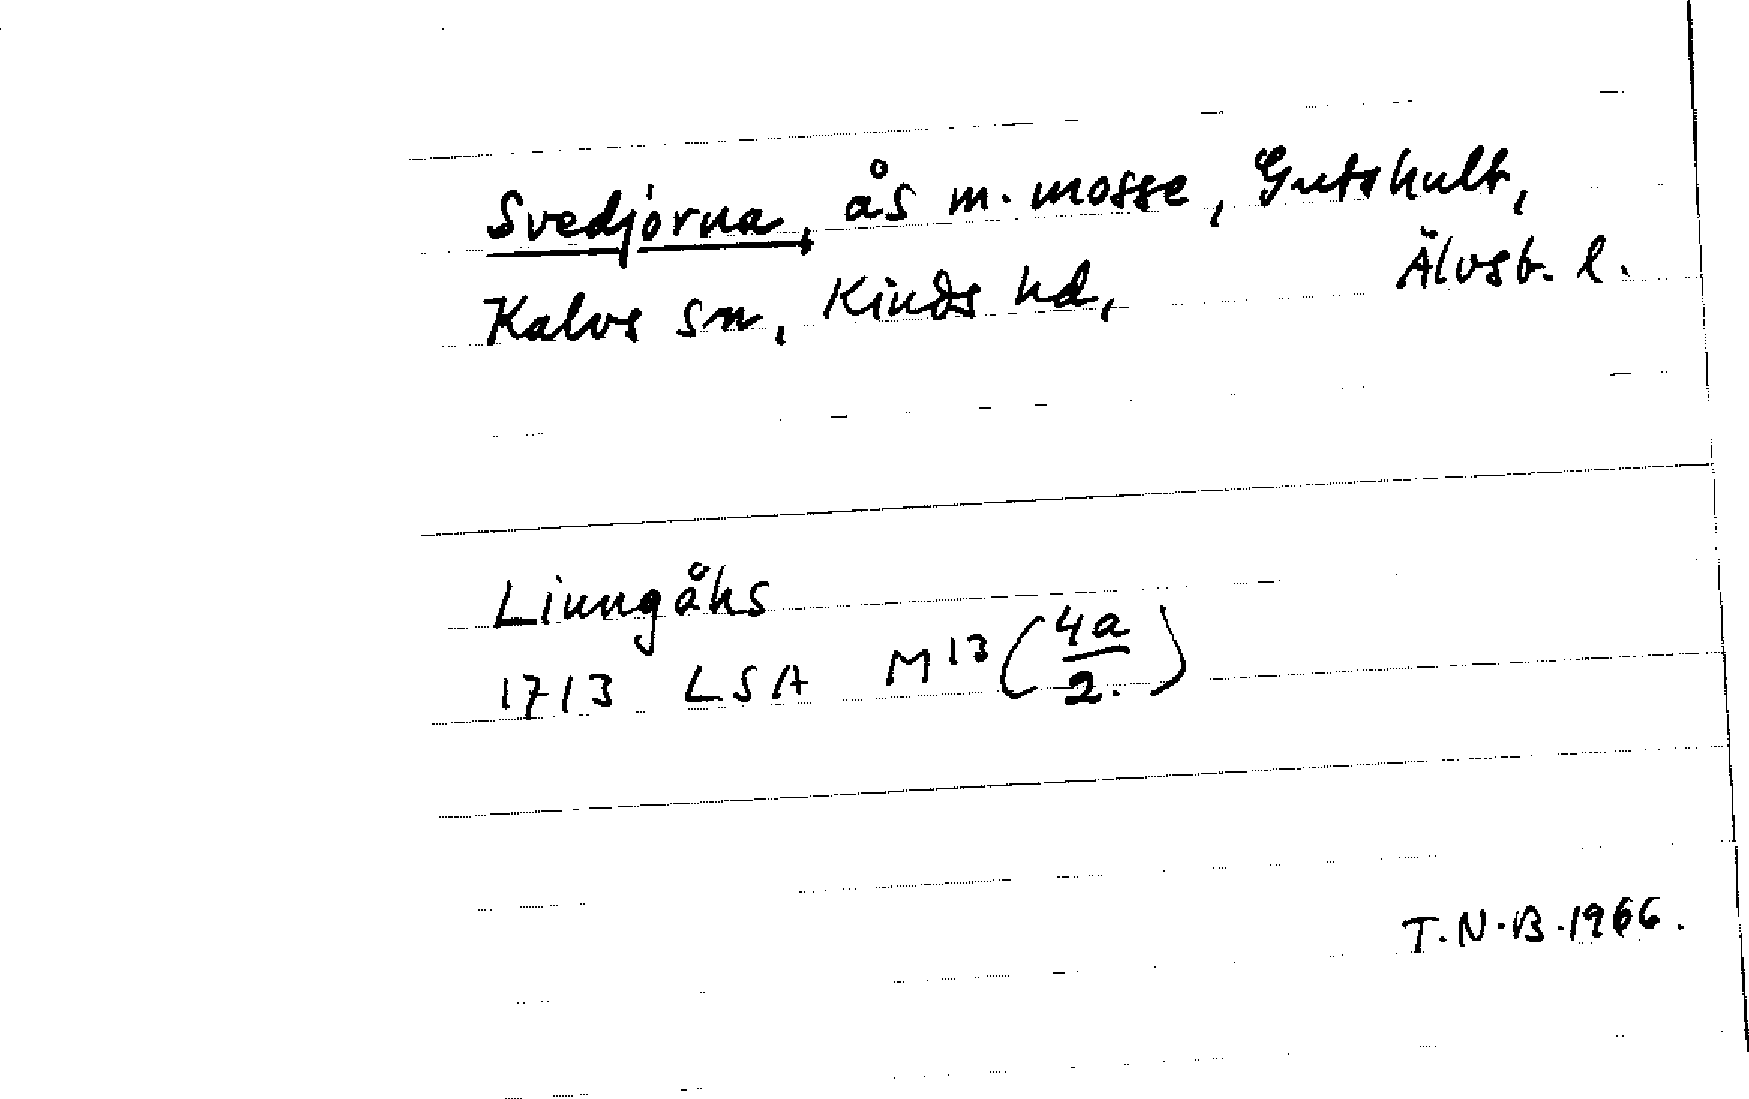 Svedjorna, ås m. mosse, Gutshult,
Kalvs sn, Kinds hd, Älvsb. l.
Liungåhs
1713 LSA M13 (4a/2.)
T.N.B. 1966.